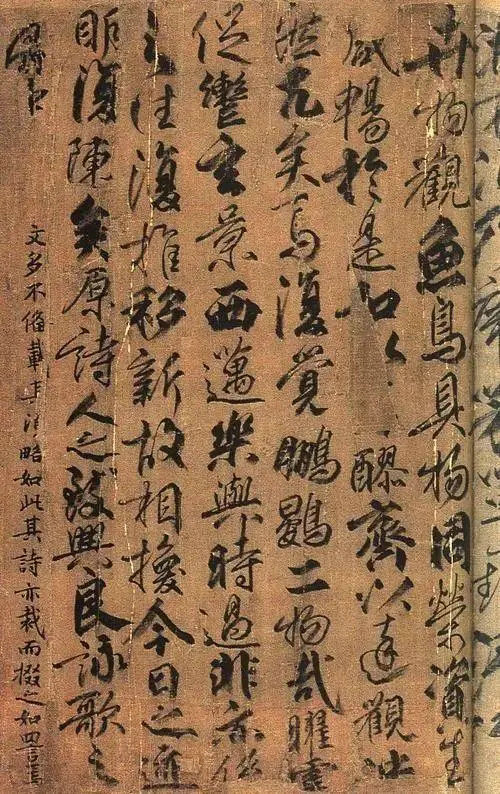 卉物觀魚鳥具物同榮資生
咸暢於是和以醪齊以達觀泱
然兀矣焉復覺鵬鷃二物哉曜靈
促轡玄景西邁樂與時過悲亦係
之往復推移新故相換今日之迹
明復陳矣原詩人之致興良詠歌之
文多不備載其大略如此其詩亦裁而掇之如四言焉